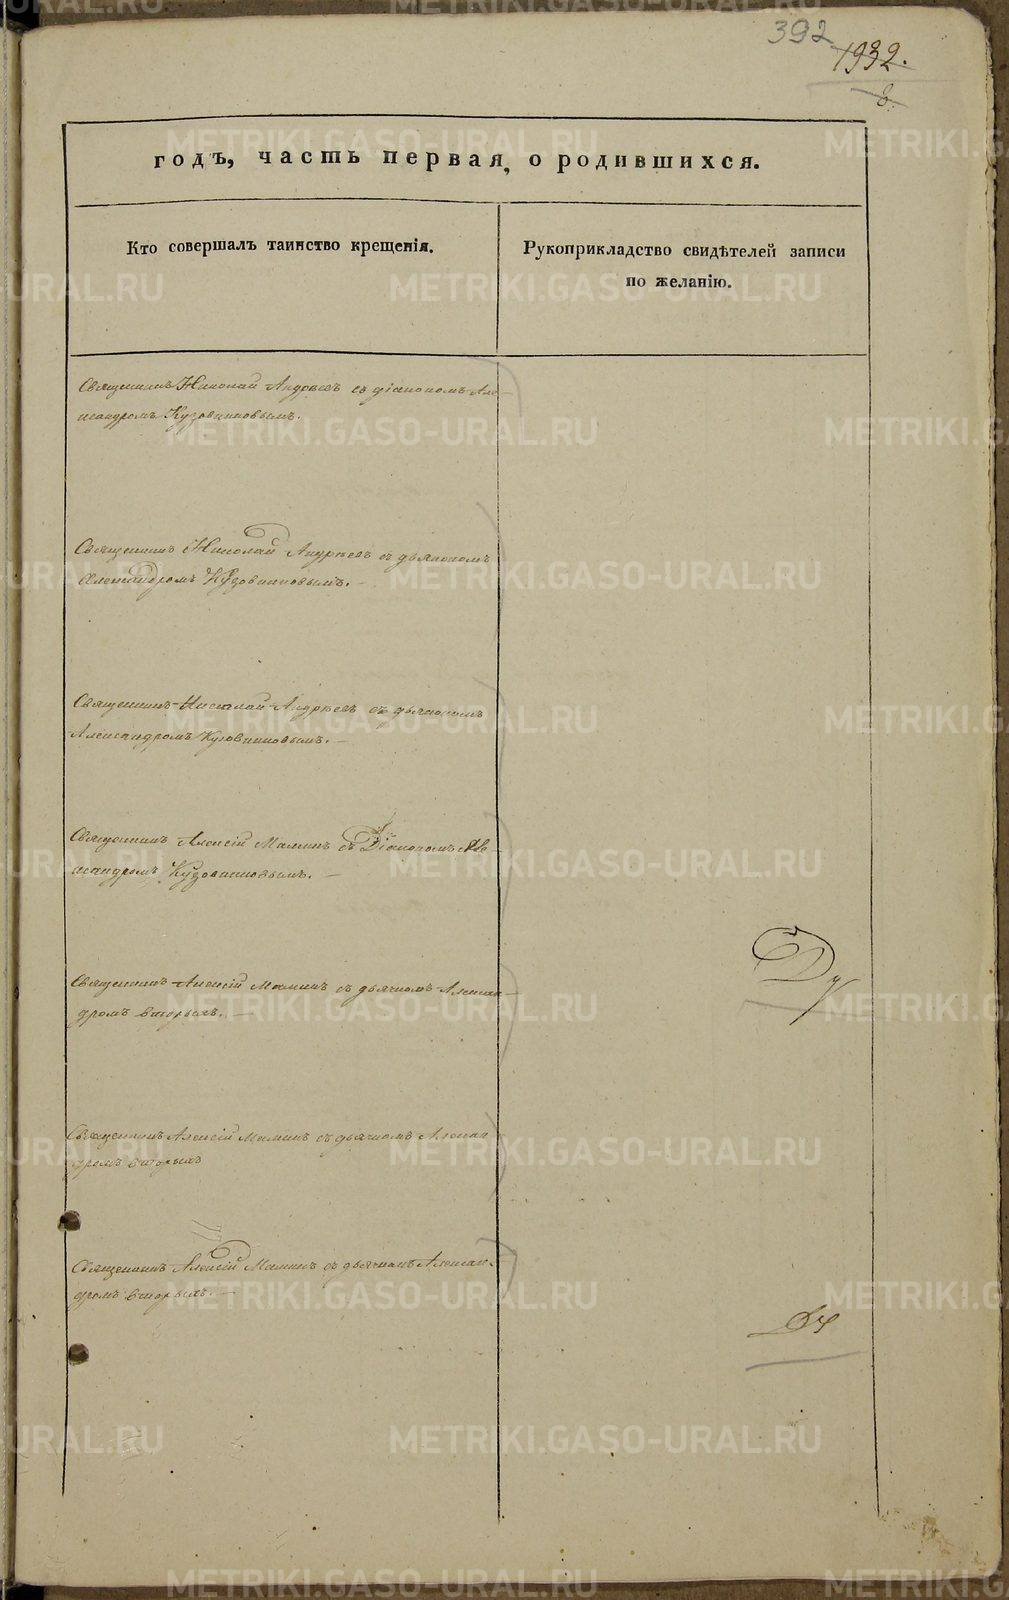 392
1932.
годъ, часть первая, о родившихся.
Кто совершалъ таинство крещенія.
Рукоприкладство свидѣтелей записи
по желанію.
Священникъ Николай Андреевъ съ діакономъ Але-
ксандромъ Кузовниковымъ.
Священникъ Николай Андреевъ съ дьякономъ
Александромъ Кузовниковымъ. —
Священникъ Николай Андреевъ съ дьякономъ
Александромъ Кузовниковымъ. —
Священникъ Алексій Маминъ съ Діакономъ Але-
ксандромъ Кузовниковымъ. —
Священникъ Алексій Маминъ съ дьячкомъ Алексан-
дромъ Вторыхъ. —
Священникъ Алексій Маминъ съ дьячкомъ Алексан
дромъ Вторыхъ
Священникъ Алексій Маминъ съ дьячкомъ Алексан-
дромъ Вторыхъ. —
METRIKI.GASO-URAL.RU